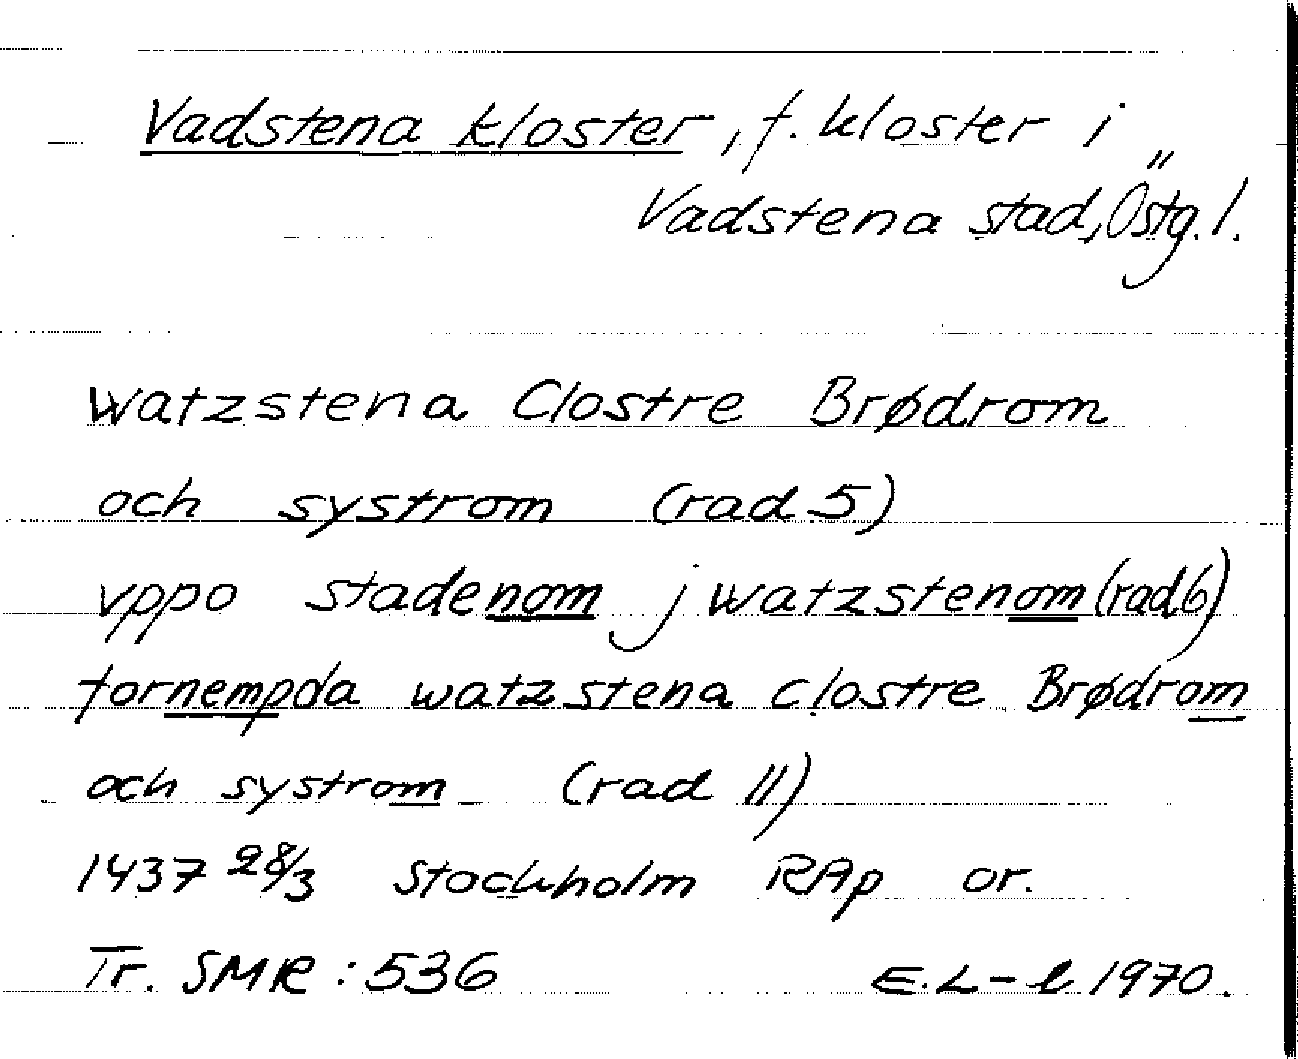 Vadstena kloster, f. kloster i
Vadstena stad, Östg. l.
Watzstena Clostre Brødrom
och systrom (rad 5)
vppo stadenom j watzstenom (rad 6)
fornempda watzstena clostre Brødrom
och systrom (rad 11)
1437 28/3 Stockholm RAp or.
Tr. SMR : 536 E. L-l 1970.